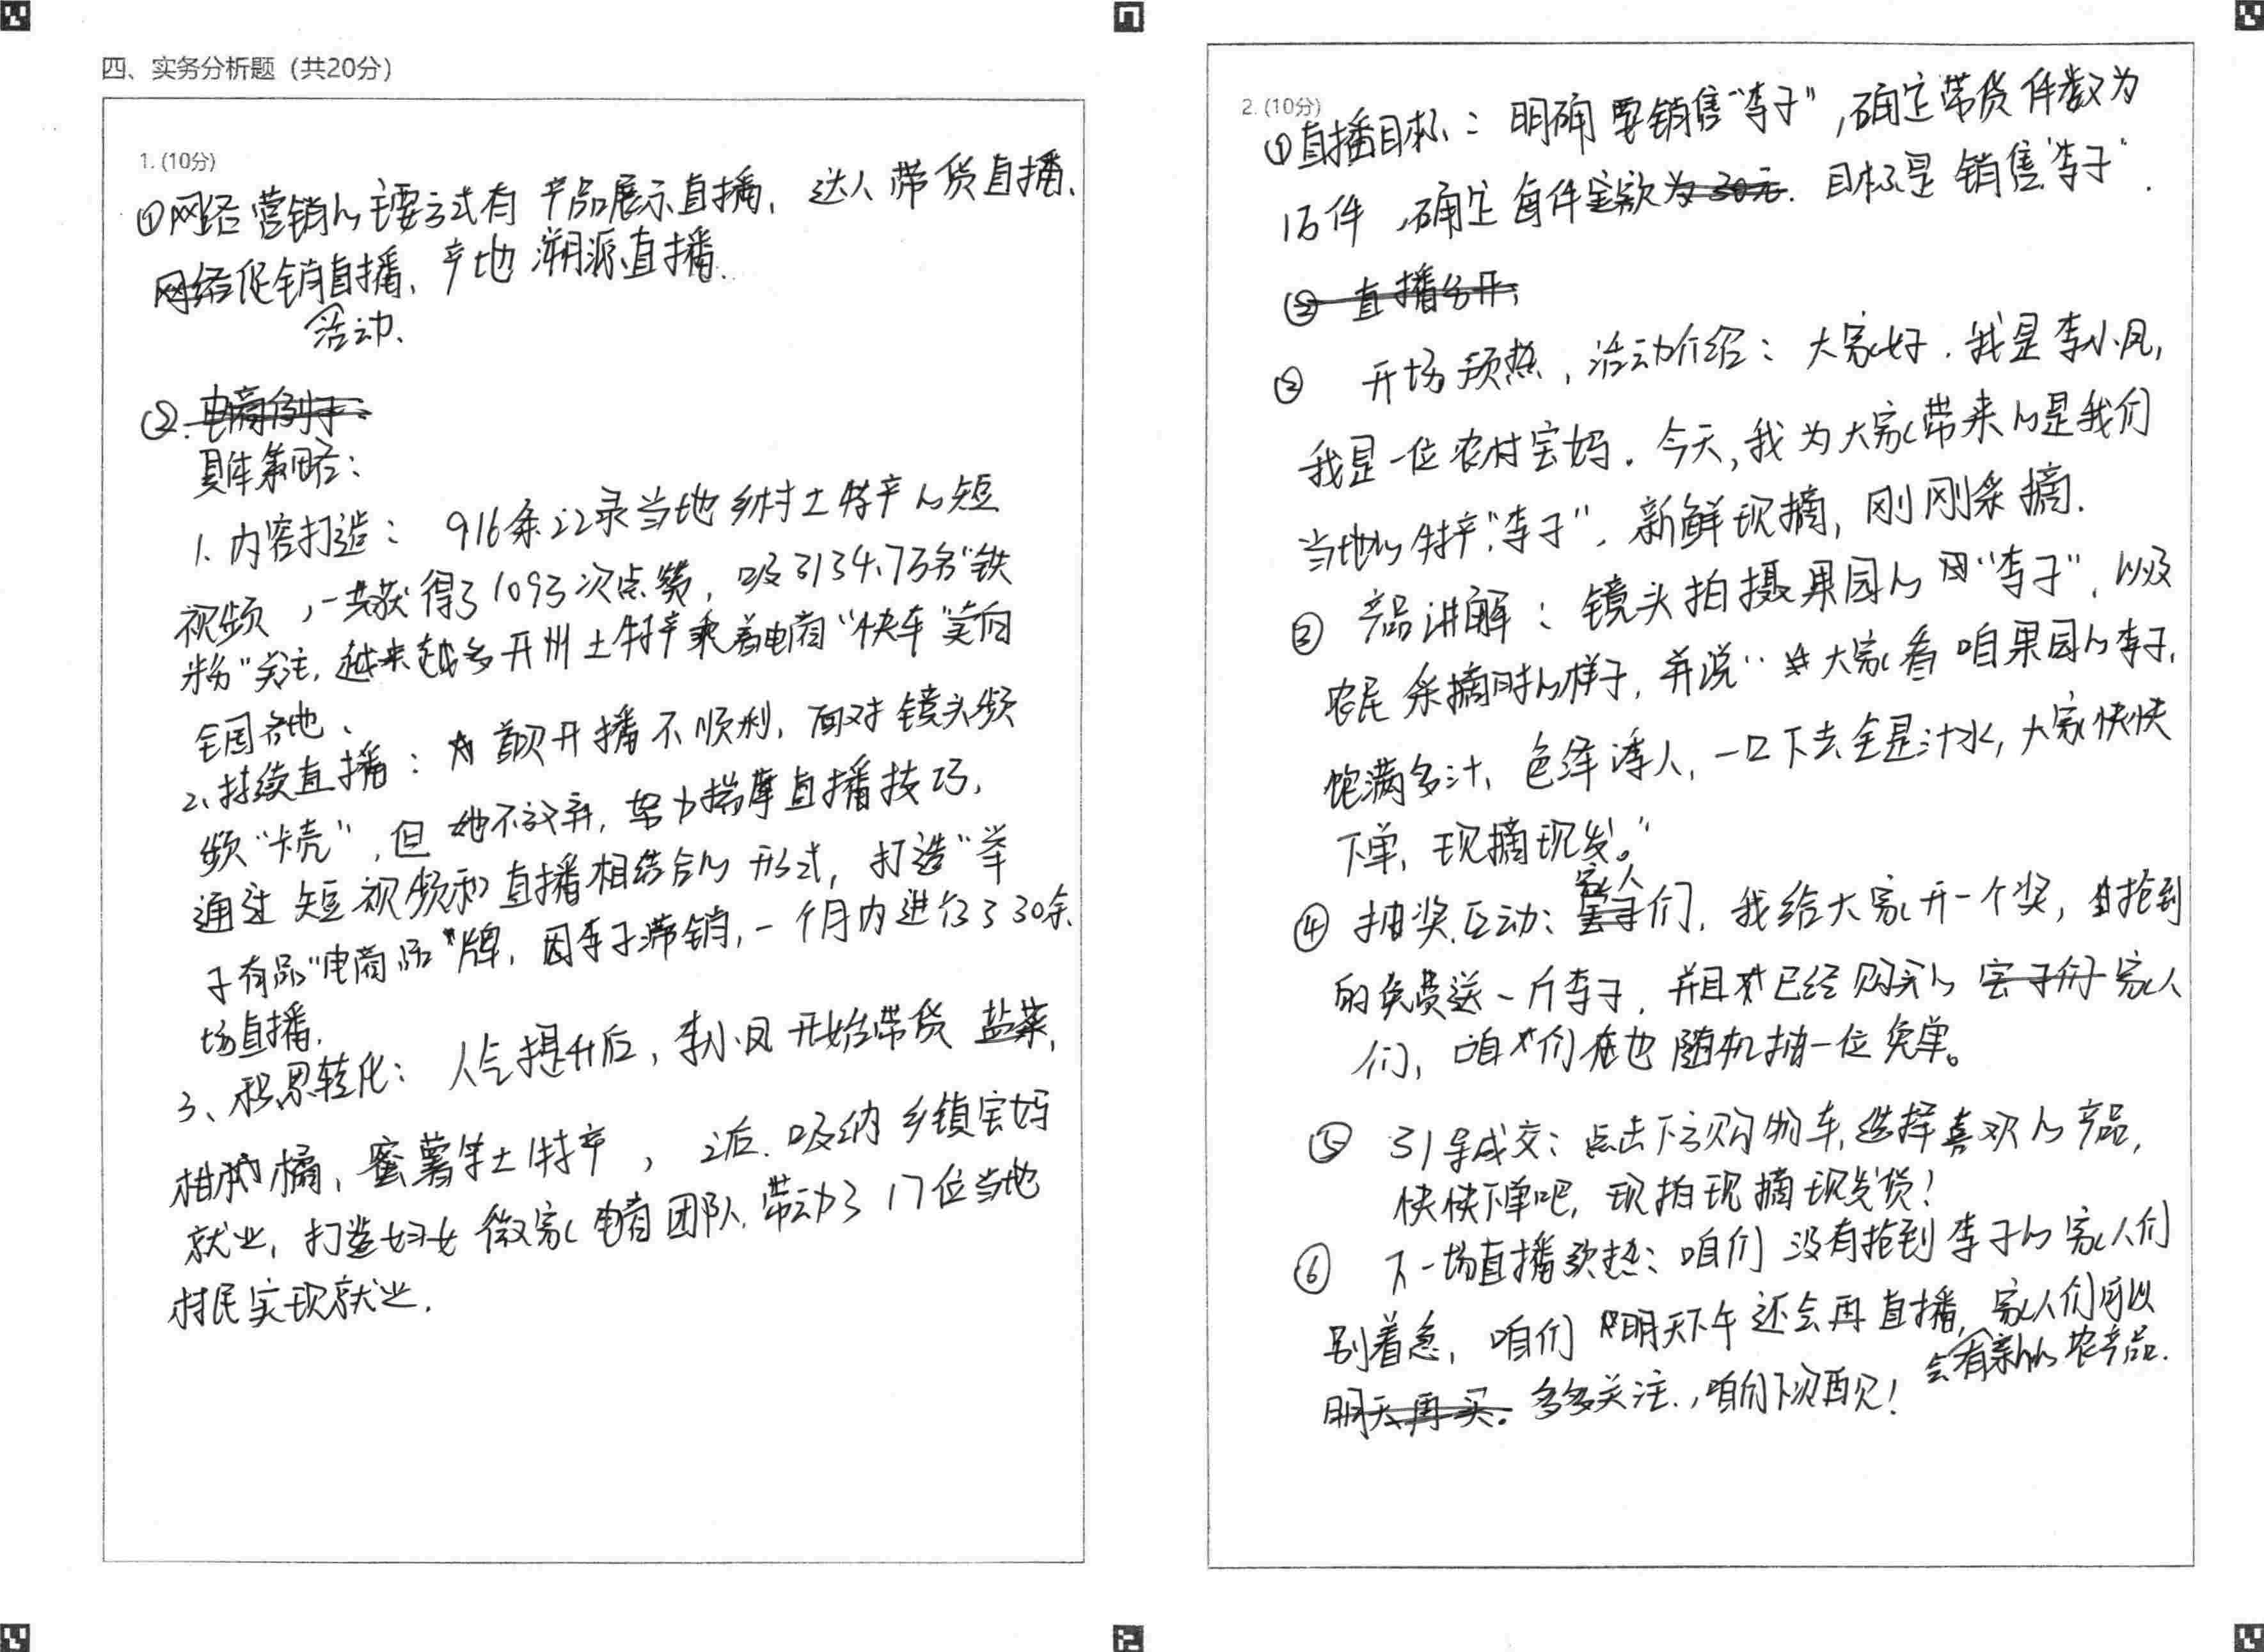 四、实务分析题（共20分）
1. (10分)
①网络营销的主要方式有 产品展示直播、达人带货直播、
网络促销直播、产地溯源直播.
活动.
②.电商例子
具体策略：
1.内容打造：916条记录当地乡村土特产的短
视频，一共获得了109万次点赞，吸引34.7万名“铁
粉”关注,越来越多开州土特产乘着电商“快车”卖向
全国各地、
2、持续直播：首次开播不顺利，面对镜头频
频“卡壳”，但她不放弃，努力揣摩直播技巧，
通过短视频和直播相结合的形式，打造“举
子有品”电商品牌，因李子滞销，一个月内进行了30余
场直播.
3、积累转化：人气提升后，李小凤开始带货 盐菜，
柑橘，蜜薯等土特产，之后.吸纳乡镇宝妈
就业，打造妇女微家电商团队,带动了17位当地
村民实现就业.
2. (10分)
①直播目标：明确要销售“李子”,确定带货件数为
1万件,确定每件定款为30元.目标是销售“李子”.
② 直播分开：
② 开场预热，活动介绍：大家好.我是李小凤，
我是一位农村宝妈.今天,我为大家带来的是我们
当地的特产“李子”，新鲜现摘，刚刚采摘.
③ 产品讲解：镜头拍摄果园的“李子”，以及
农民采摘时的样子，并说“大家看咱果园的李子,
饱满多汁，色泽诱人，一口下去全是汁水，大家快快
下单，现摘现发。”
家人
④ 抽奖互动：宝子们，我给大家开一个奖，抢到
的免费送一斤李子，并且已经购买的宝子们家人
们，咱们也随机抽一位免单。
⑤ 引导成交：点击下方购物车,选择喜欢的产品，
快快下单吧，现拍现摘现发货！
⑥ 下一场直播预热：咱们没有抢到李子的家人们
别着急，咱们明天下午还会再直播，家人们可以
会有新的农产品.
明天再买。多多关注.，咱们下次再见！